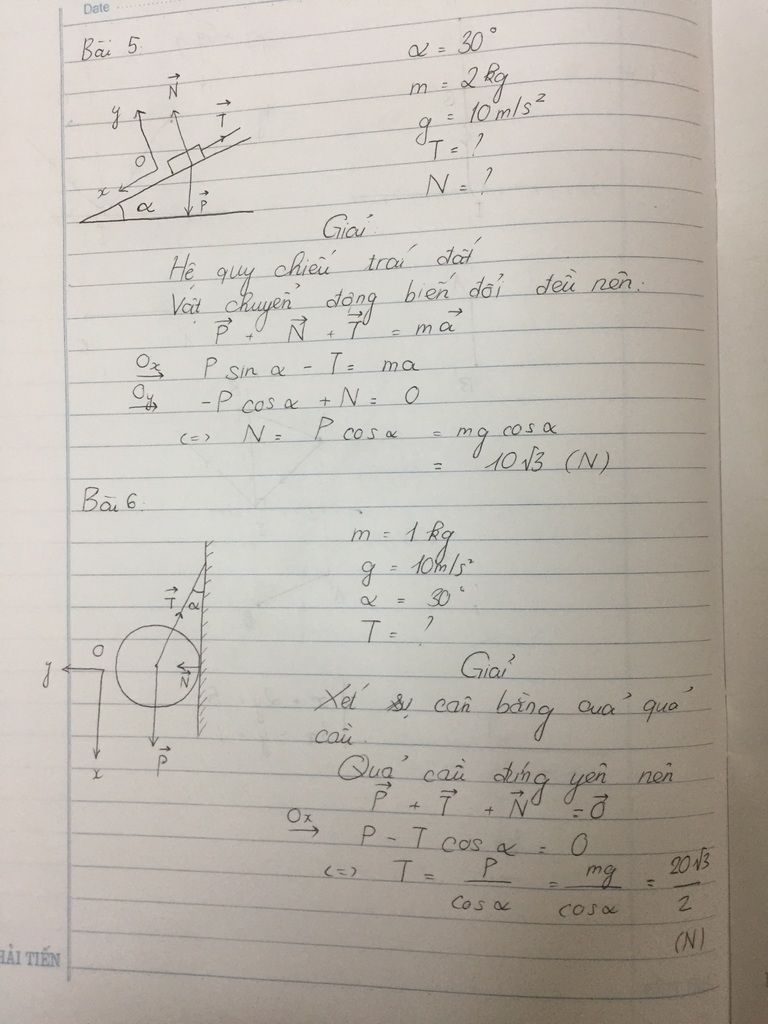 Date
Bài 5
α = 30°
m = 2 kg
g = 10 m/s²
T = ?
N = ?
y
N
T
O
x
α
P
Giải
Hệ quy chiếu trái đất
Vật chuyển động biến đổi đều nên:
P + N + T = ma
Ox P sin α - T = ma
Oy -P cos α + N = 0
<=> N = P cos α = mg cos α
= 10√3 (N)
Bài 6:
m = 1 kg
g = 10 m/s²
α = 30°
T = ?
T
α
O
y
N
x
P
Giải
Xét sự cân bằng của quả
cầu
Quả cầu đứng yên nên
P + T + N = 0
Ox P - T cos α = 0
<=> T = P/cos α = mg/cos α = 20√3/2
(N)
HẢI TIẾN